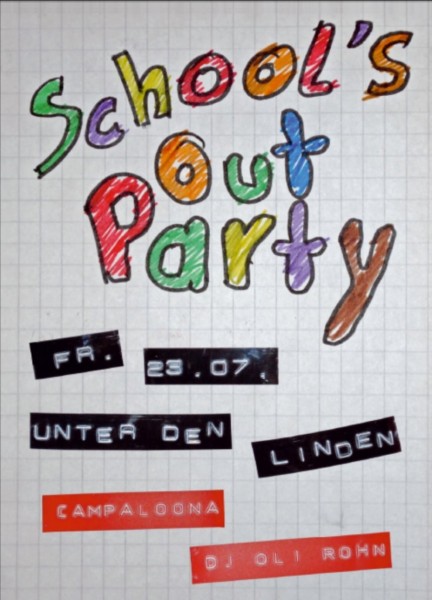 School's
out
Party
FR. 23.07.
UNTER DEN LINDEN
CAMPALOONA
DJ OLI ROHN